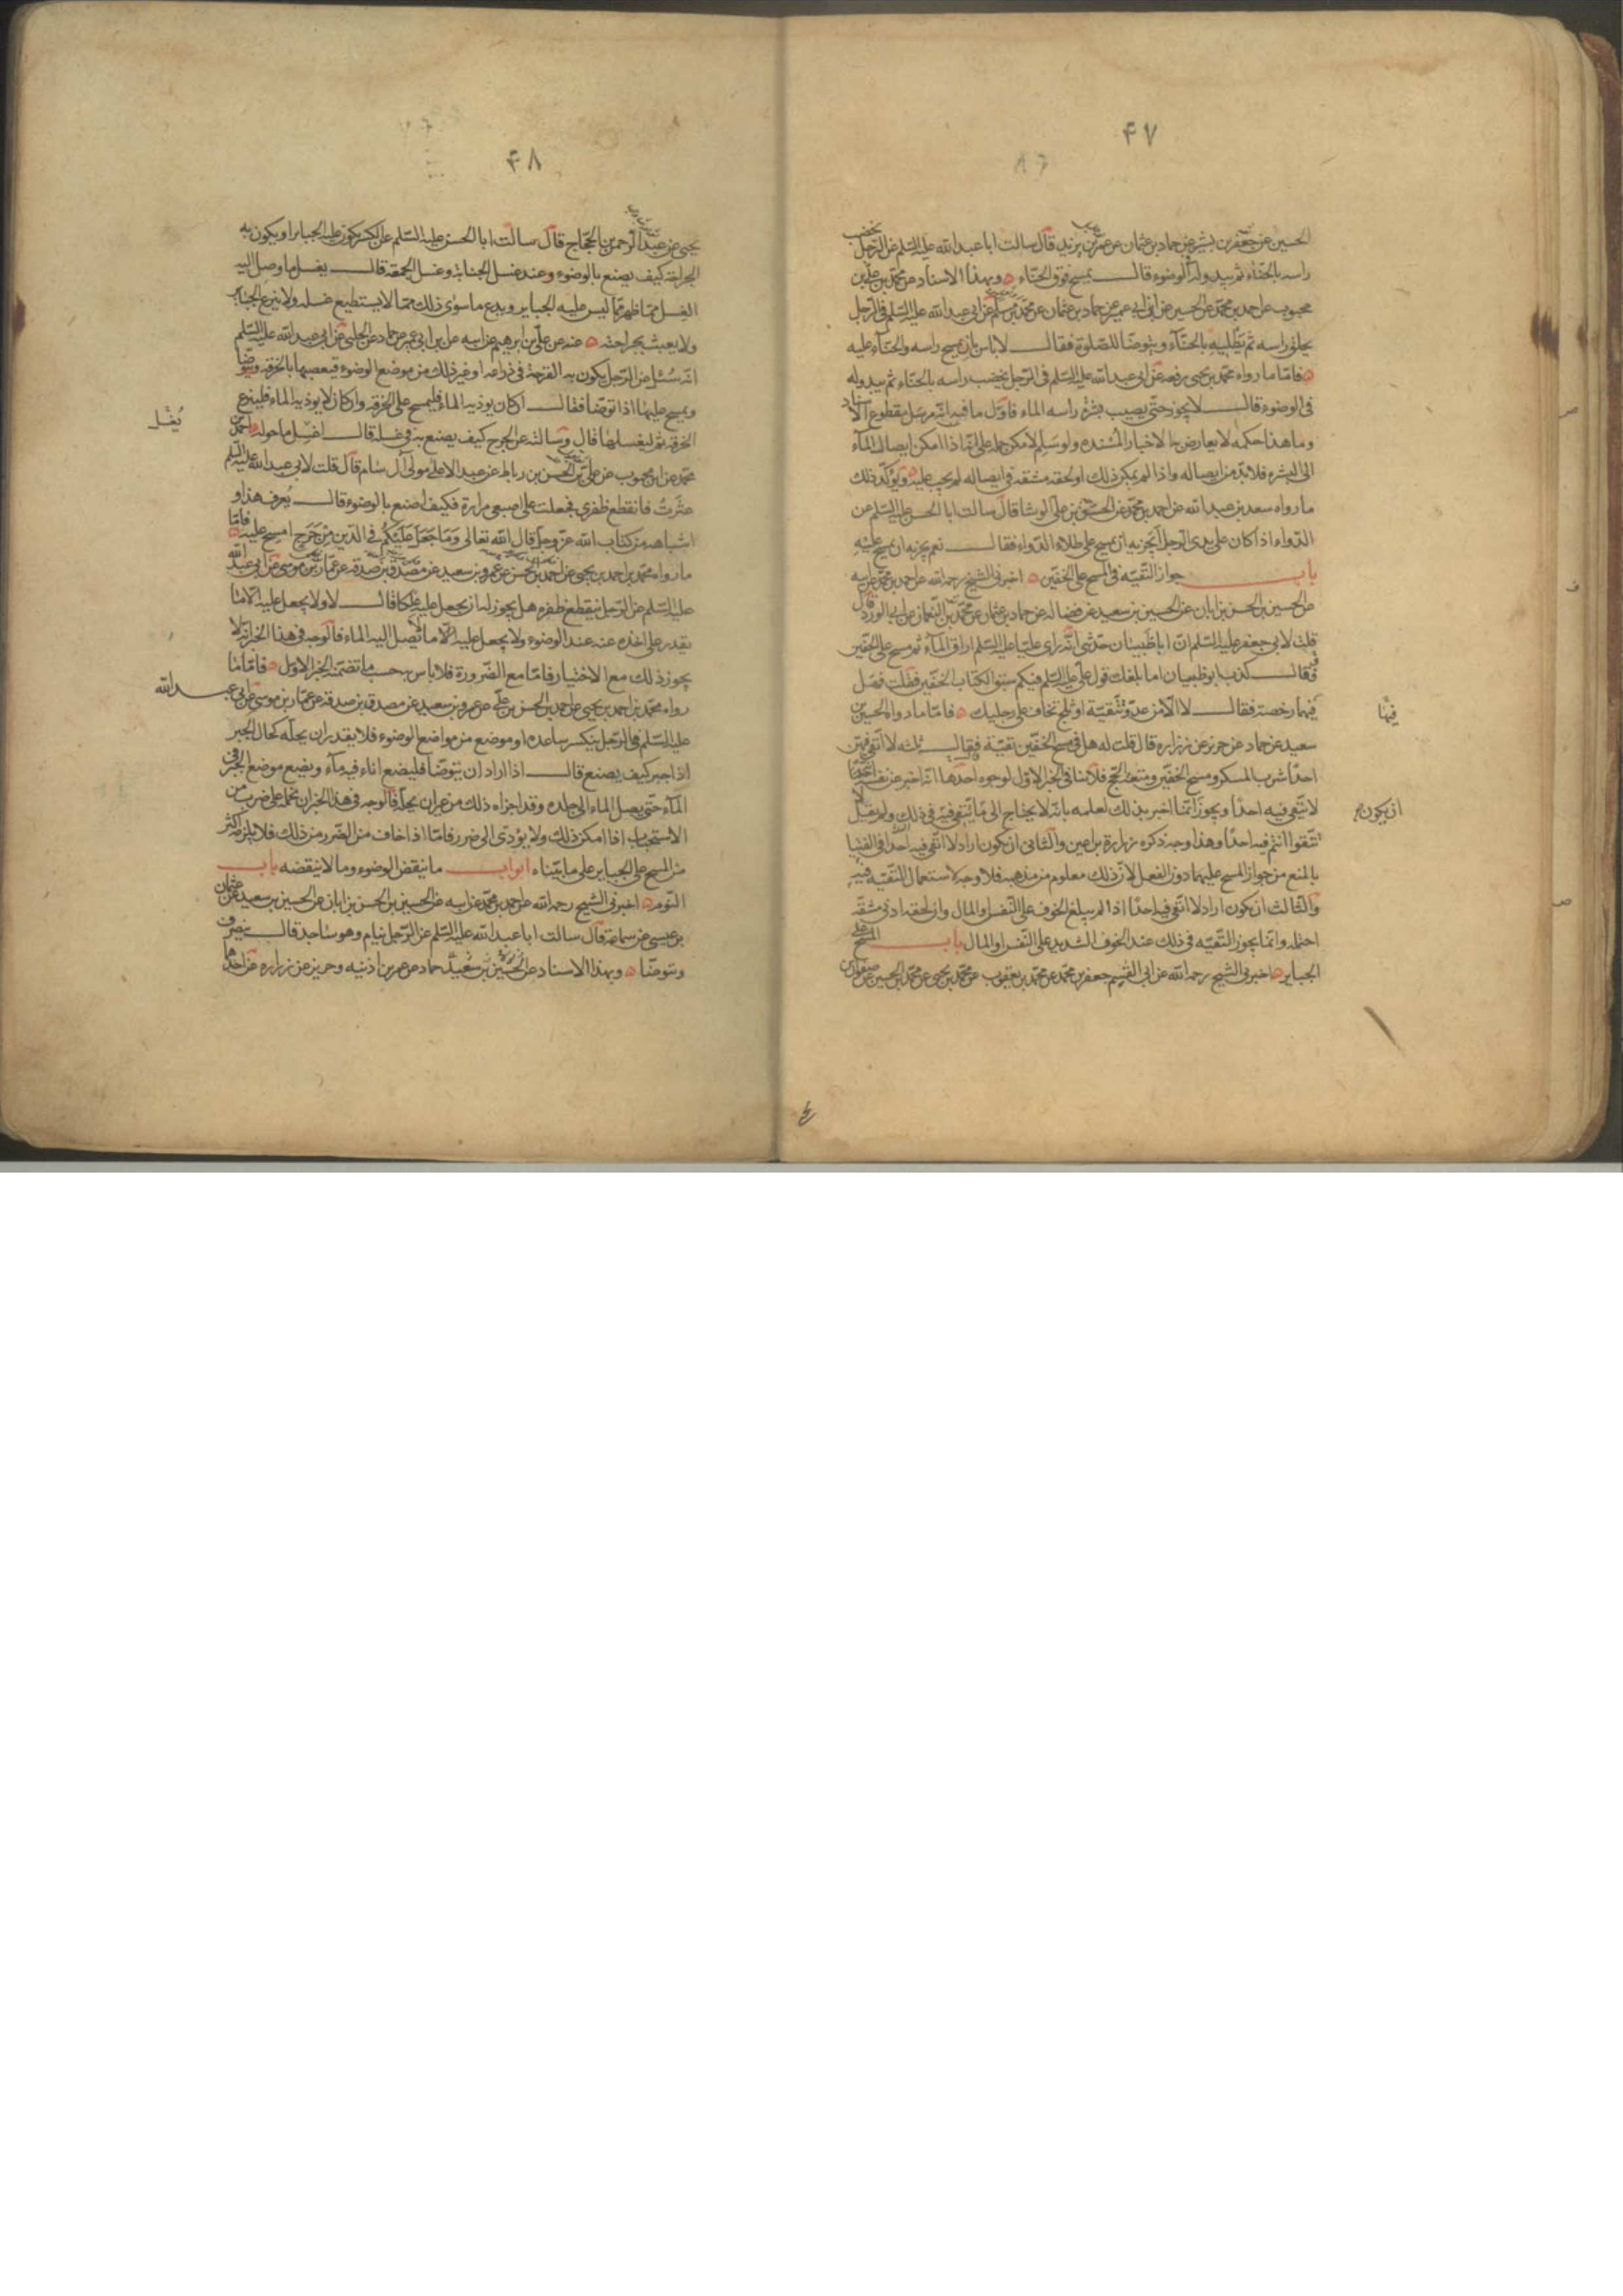 ۴۷
الحسين عن جعفر بن بشير عن حماد بن عثمان عن عمر بن يزيد قال سالت ابا عبد الله عليه السلم عن الرجل يخضب
راسه بالحناء ثم يبدو له الوضوء قال يمسح فوق الحناء ٥ وبهذا الاسناد عن محمد بن علي بن
محبوب عن احمد بن محمد عن الحسين عن ابن ابي عمير عن حماد بن عثمان عن محمد بن مسلم عن ابي عبد الله عليه السلم في الرجل
يحلق راسه ثم يطليه بالحناء ويتوضا للصلوة فقال لا باس بان يمسح راسه والحناء عليه
٥ فاما ما رواه محمد بن يحيى رفعه عن ابي عبد الله عليه السلم في الرجل يخضب راسه بالحناء ثم يبدو له
في الوضوء قال لا يجوز حتى يصيب بشرة راسه الماء فاول ما فيه انه مرسل مقطوع الاسناد
وما هذا حكمه لا يعارض به الاخبار المسنده ولو سلم لامكن حمله على انه اذا امكن ايصال الماء
الى البشره فلا بد من ايصاله واذا لم يمكن ذلك او لحقه مشقة في ايصاله لم يجب عليه ٥ ويؤكد ذلك
ما رواه سعد بن عبد الله عن احمد بن محمد عن الحسن بن علي الوشا قال سالت ابا الحسن عليه السلم عن
الدواء اذا كان على يدي الرجل ايجزيه ان يمسح على طلاء الدواء فقال نعم يجزيه ان يمسح عليه
باب جواز التقيه في المسح على الخفين ٥ اخبرني الشيخ رحمه الله عن احمد بن محمد عن ابيه
عن الحسين بن الحسن بن ابان عن الحسين بن سعيد عن فضاله عن حماد بن عثمان عن محمد بن النعمان عن ابي الورد قال
قلت لابي جعفر عليه السلم ان ابا ظبيان حدثني انه راى عليا عليه السلم اراق الماء ثم مسح على الخفين
فقال كذب ابو ظبيان اما بلغك قول علي عليه السلم فيكم سبق الكتاب الخفين فقلت فهل
فيهما رخصة فقال لا الا من عدو تتقيه او ثلج تخاف على رجليك ٥ فاما ما رواه الحسين بن
فيها
سعيد عن حماد عن حريز عن زراره قال قلت له هل في مسح الخفين تقية فقال ثلثه لا اتقي فيهن
احدا شرب المسكر ومسح الخفين ومتعة الحج فلا ينافي الخبر الاول لوجوه احدها انه اخبر عن نفسه انه
لا يتقي فيه احدا ويجوز انما اخبر بذلك لعلمه بانه لا يحتاج الى ما يتقي فيه في ذلك ولم يقل لا
ان يكون
تتقوا انتم فيه احدا وهذا وجه ذكره زرارة بن اعين والثاني ان يكون اراد لا اتقي فيه احدا في الفتيا
بالمنع من جواز المسح عليهما دون الفعل لان ذلك معلوم من مذهبه فلا وجه لاستعمال التقيه فيه
والثالث ان يكون اراد لا اتقي فيه احدا اذا لم يبلغ الخوف على النفس او المال وان لحقه ادنى مشقه
احتمله وانما يجوز التقيه في ذلك عند الخوف الشديد على النفس او المال باب المسح على
الجباير ٥ اخبرني الشيخ رحمه الله عن ابي القسم جعفر بن محمد عن محمد بن يعقوب عن محمد بن يحيى عن محمد بن الحسين عن صفوان بن
۴۸
يحيى عن عبد الرحمن بن الحجاج قال سالت ابا الحسن عليه السلم عن الكسير يكون عليه الجباير او يكون به
الجراحة كيف يصنع بالوضوء وعند غسل الجنابة وغسل الجمعة قال يغسل ما وصل اليه
الغسل مما ظهر مما ليس عليه الجباير ويدع ما سوى ذلك مما لا يستطيع غسله ولا ينزع الجباير
ولا يعبث بجراحته ٥ عنه عن علي بن ابرهيم عن ابيه عن ابن ابي عمير عن حماد عن الحلبي عن ابي عبد الله عليه السلم
انه سئل عن الرجل يكون به القرحة في ذراعه او غير ذلك من موضع الوضوء فيعصبها بالخرقه ويتوضا
ويمسح عليها اذا توضا فقال ان كان يوذيه الماء فليمسح على الخرقه وان كان لا يوذيه الماء فلينزع
الخرقه ثم ليغسلها قال وسالته عن الجرح كيف يصنع به في غسله قال اغسل ما حوله ٥ احمد بن
يغسل
محمد عن ابن محبوب عن علي بن الحسن بن رباط عن عبد الاعلى مولى آل سام قال قلت لابي عبد الله عليه السلم
عثرت فانقطع ظفري فجعلت على اصبعي مرارة فكيف اصنع بالوضوء قال يعرف هذا و
اشباهه من كتاب الله عز وجل قال الله تعالى وما جعل عليكم في الدين من حرج امسح عليه ٥ فاما
ما رواه محمد بن احمد بن يحيى عن احمد بن الحسن عن عمرو بن سعيد عن مصدق بن صدقه عن عمار بن موسى عن ابي عبد الله
عليه السلم عن الرجل ينقطع ظفره هل يجوز له ان يجعل عليه علكا قال لا ولا يجعل عليه الا ما
يقدر على اخذه عنه عند الوضوء ولا يجعل عليه الا ما يصل اليه الماء فالوجه في هذا الخبر انه لا
يجوز ذلك مع الاختيار فاما مع الضرورة فلا باس به حسب ما تضمنه الخبر الاول ٥ فاما ما
رواه محمد بن احمد بن يحيى عن احمد بن الحسن بن علي عن عمرو بن سعيد عن مصدق بن صدقه عن عمار بن موسى عن ابي عبد الله
عليه السلم في الرجل ينكسر ساعده او موضع من مواضع الوضوء فلا يقدر ان يحله لحال الجبر
اذا جبر كيف يصنع قال اذا اراد ان يتوضا فليضع اناء فيه ماء ويضع موضع الجبر في
الماء حتى يصل الماء الى جلده وقد اجزاه ذلك من غير ان يحله فالوجه في هذا الخبر ان نحمله على ضرب من
الاستحباب اذا امكن ذلك ولا يؤدي الى ضرر فاما اذا خاف من الضرر من ذلك فلا يلزمه اكثر
من المسح على الجباير على ما بيناه ابواب ما ينقض الوضوء وما لا ينقضه باب
النوم ٥ اخبرني الشيخ رحمه الله عن احمد بن محمد عن ابيه عن الحسين بن الحسن بن ابان عن الحسين بن سعيد عن عثمان
بن عيسى عن سماعة قال سالت ابا عبد الله عليه السلم عن الرجل ينام وهو ساجد قال ينصرف
ويتوضا ٥ وبهذا الاسناد عن الحسين بن سعيد عن حماد عن عمر بن اذنيه وحريز عن زراره عن احدهما